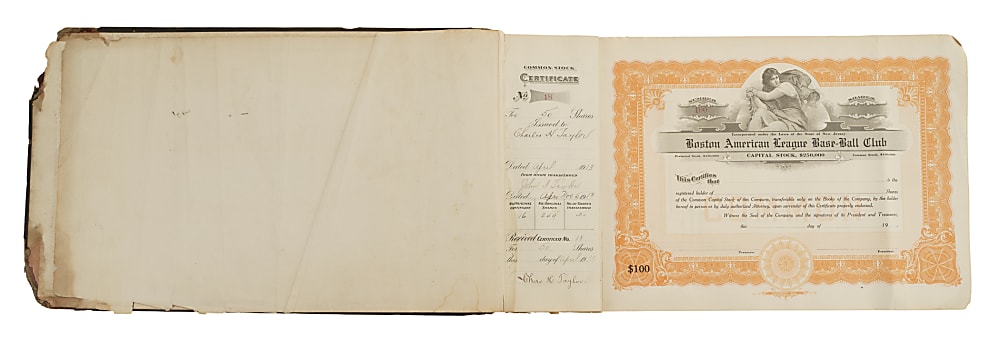 COMMON STOCK
CERTIFICATE
No 18
For 50 Shares
Issued to
Charles H Taylor
Dated April 1913
FROM WHOM TRANSFERRED
John I Taylor
Dated
No. ORIGINAL CERTIFICATE
No. ORIGINAL SHARES
No. OF SHARES TRANSFERRED
16 200
Received CERTIFICATE No. 18
For 50 Shares
this day of April 19
Chas H Taylor
NUMBER
SHARES
Incorporated under the Laws of the State of New Jersey
Boston American League Base-Ball Club
CAPITAL STOCK, $250,000
This Certifies that is the
registered holder of Shares
of the Common Capital Stock of this Company, transferable only on the Books of the Company, by the holder
hereof in person or by duly authorized Attorney, upon surrender of this Certificate properly endorsed.
Witness the Seal of the Company and the signatures of its President and Treasurer,
this day of 19
Treasurer.
President.
$100